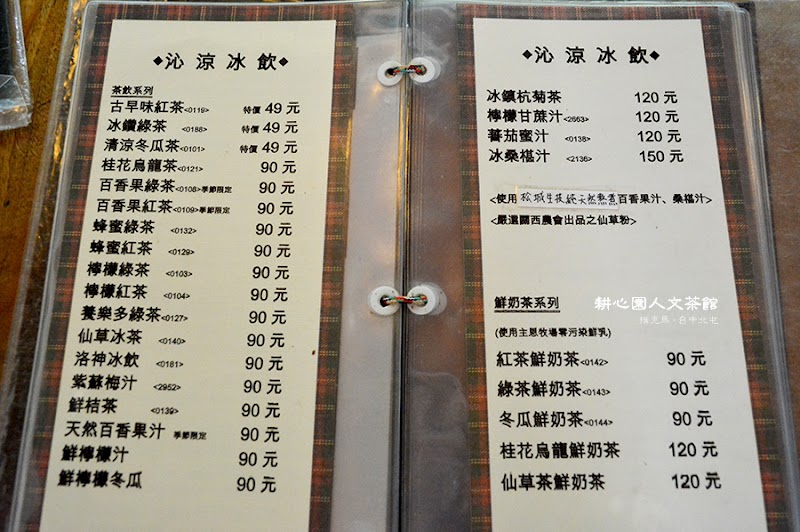 ◆沁涼冰飲◆
茶飲系列
古早味紅茶<0119> 特價 49 元
冰鑽綠茶 <0188> 特價 49 元
清涼冬瓜茶<0101> 特價 49 元
桂花烏龍茶<0121> 90 元
百香果綠茶<0108>季節限定 90 元
百香果紅茶<0109>季節限定 90 元
蜂蜜綠茶 <0132> 90 元
蜂蜜紅茶 <0129> 90 元
檸檬綠茶 <0103> 90 元
檸檬紅茶 <0104> 90 元
養樂多綠茶<0127> 90 元
仙草冰茶 <0140> 90 元
洛神冰飲 <0181> 90 元
紫蘇梅汁 <2952> 90 元
鮮桔茶 <0139> 90 元
天然百香果汁 季節限定 90 元
鮮檸檬汁 90 元
鮮檸檬冬瓜 90 元
◆沁涼冰飲◆
冰鎮杭菊茶 120 元
檸檬甘蔗汁<2663> 120 元
蕃茄蜜汁 <0138> 120 元
冰桑椹汁 <2136> 150 元
<使用 天然熬煮百香果汁、桑椹汁>
<嚴選關西農會出品之仙草粉>
鮮奶茶系列
(使用主恩牧場零污染鮮乳)
紅茶鮮奶茶<0142> 90 元
綠茶鮮奶茶<0143> 90 元
冬瓜鮮奶茶<0144> 90 元
桂花烏龍鮮奶茶 120 元
仙草茶鮮奶茶 120 元
耕心園人文茶館
猴克馬．台中北屯